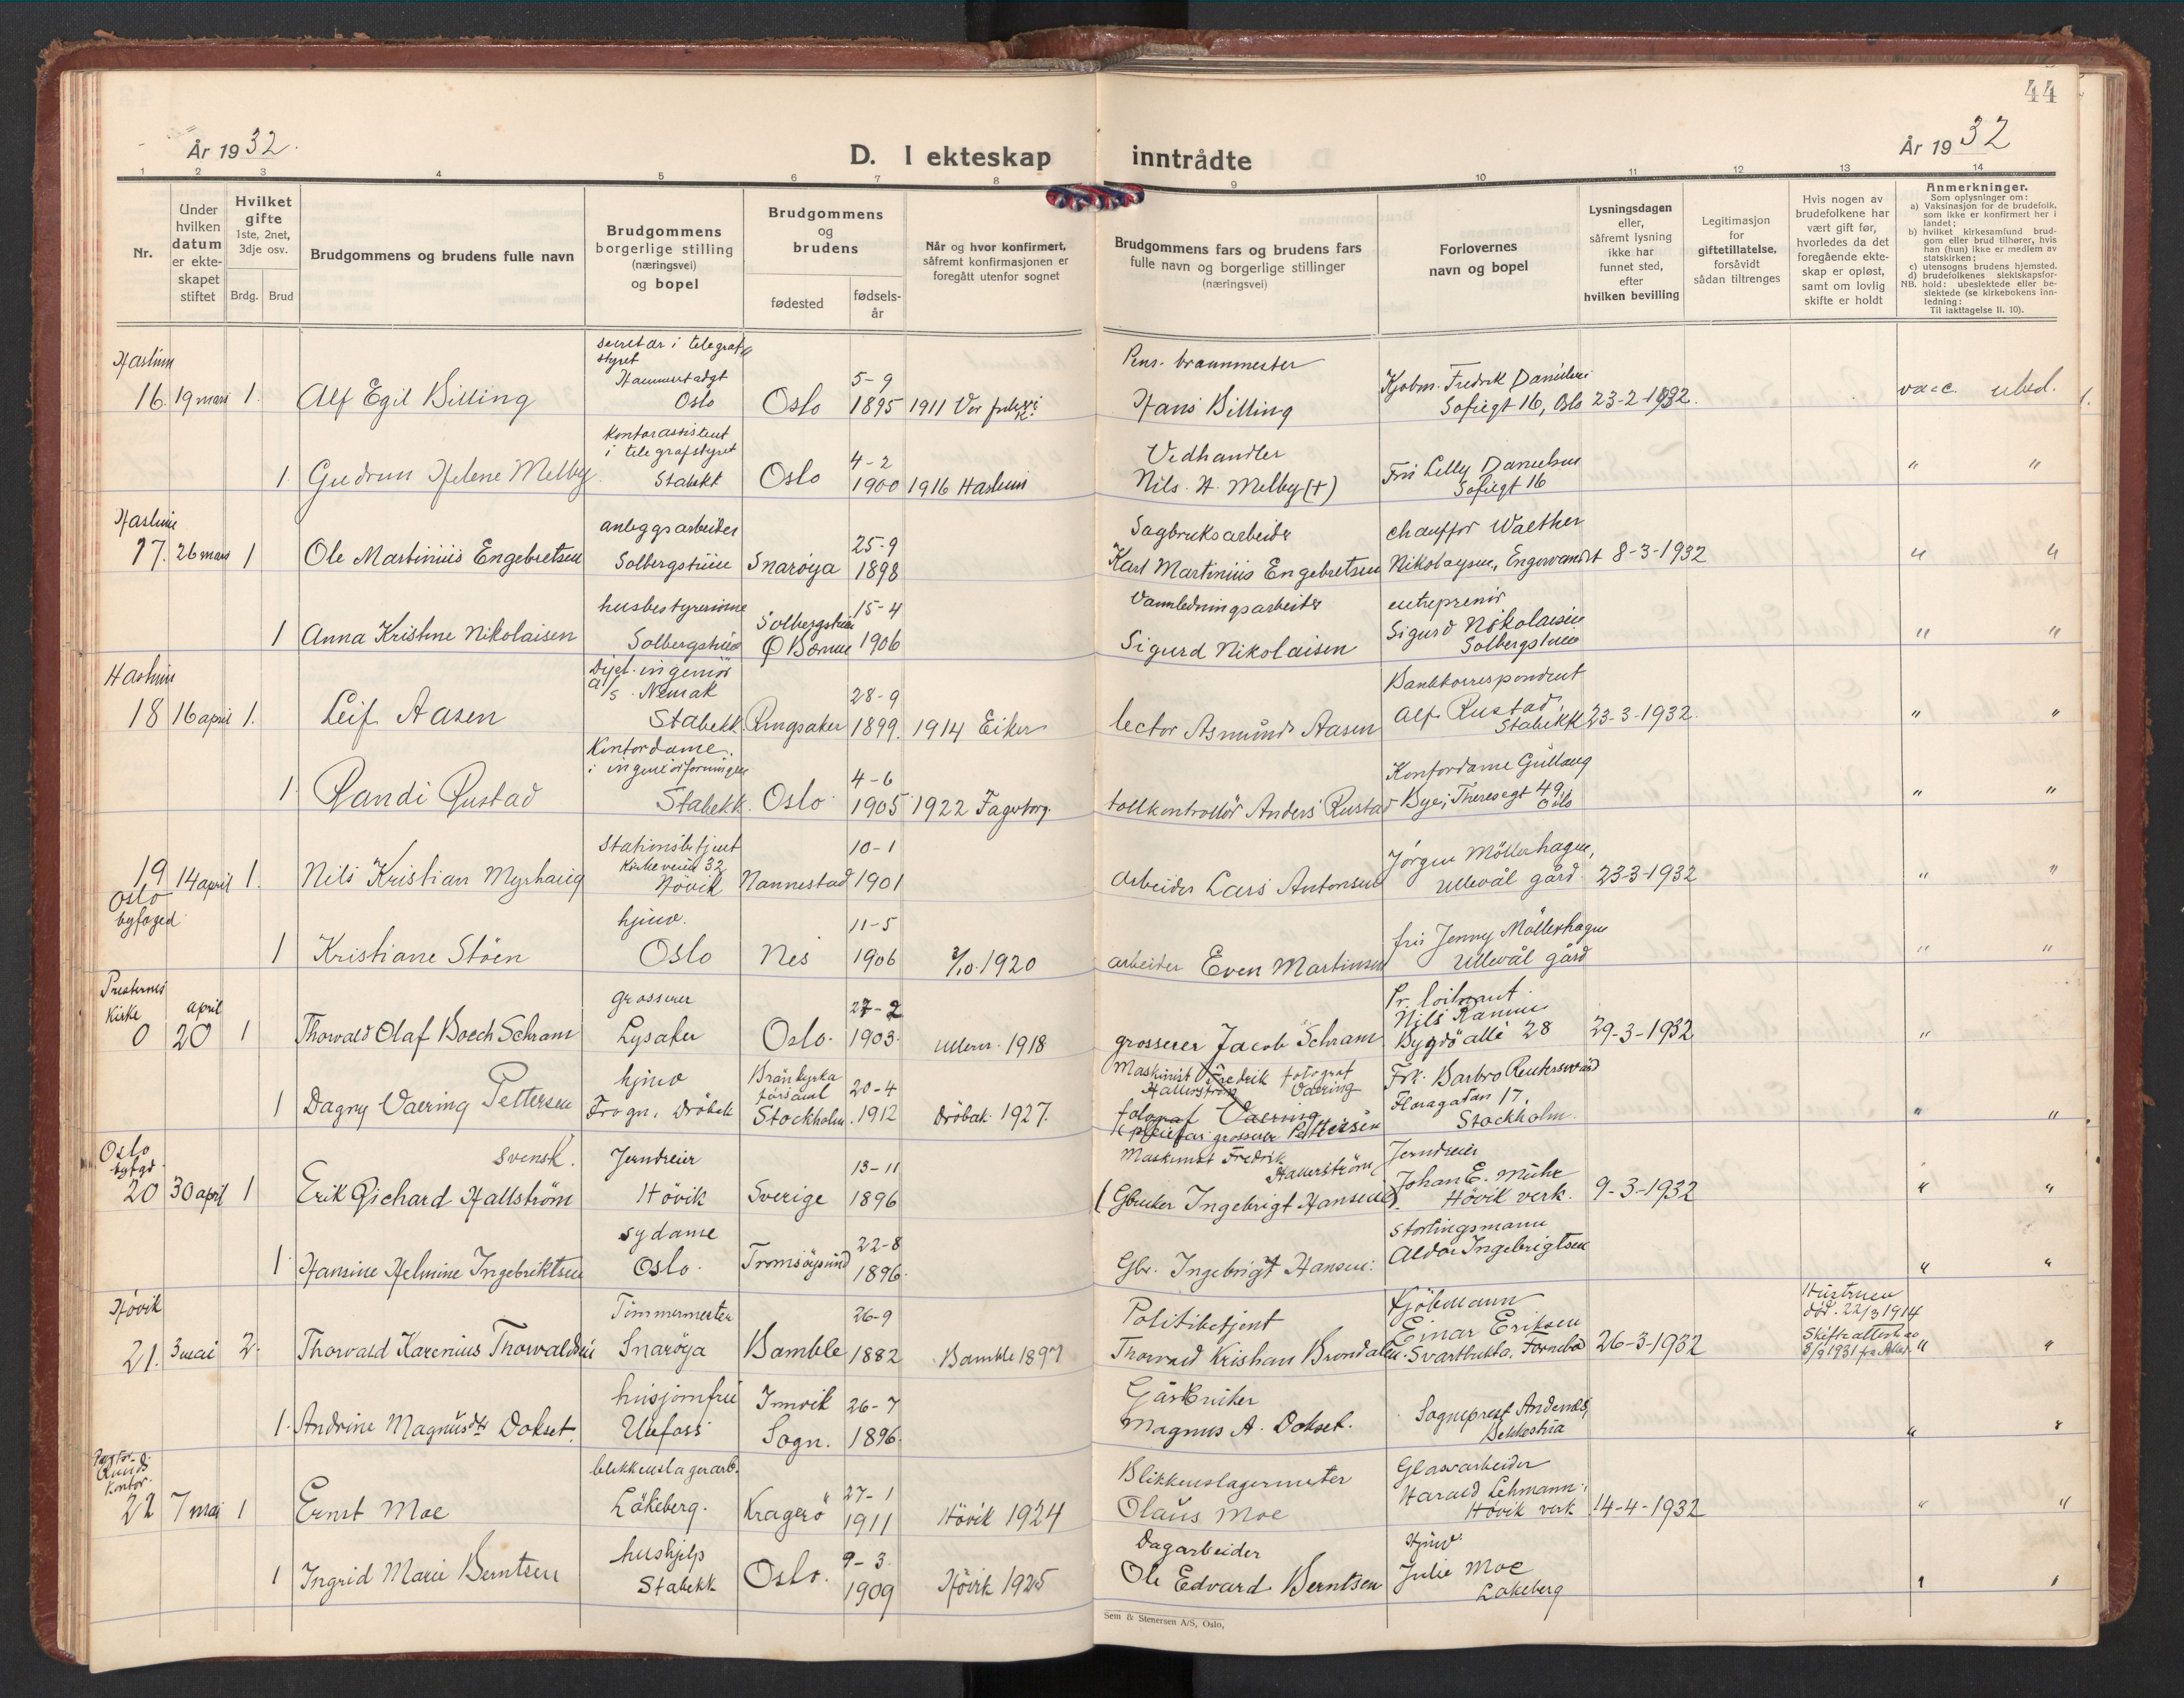 44
År 1932.
D. I ekteskap inntrådte
År 1932
1 2 3 4 5 6 7 8 9 10 11 12 13 14
Nr.
Under hvilken datum er ekteskapet stiftet
Hvilket gifte
1ste, 2net, 3dje osv.
Brdg. Brud
Brudgommens og brudens fulle navn
Brudgommens borgerlige stilling (næringsvei) og bopel
Brudgommens og brudens
fødested
fødselsår
Når og hvor konfirmert, såfremt konfirmasjonen er foregått utenfor sognet
Brudgommens fars og brudens fars fulle navn og borgerlige stillinger (næringsvei)
Forlovernes navn og bopel
Lysningsdagen eller, såfremt lysning ikke har funnet sted, efter hvilken bevilling
Legitimasjon for giftetillatelse, forsåvidt sådan tiltrenges
Hvis nogen av brudefolkene har vært gift før, hvorledes da det foregående ekteskap er opløst, samt om lovlig skifte er holdt
Anmerkninger.
Som oplysninger om:
a) Vaksinasjon for de brudefolk, som ikke er konfirmert her i landet;
b) hvilket kirkesamfund brudgom eller brud tilhører, hvis han (hun) ikke er medlem av statskirken;
c) utensogns brudens hjemsted.
d) brudefolkenes slektskapsforhold: ubeslektede eller beslektede (se kirkebokens innledning:
NB.
Til iakttagelse II. 10).
Haslum
16. 19 mars 1. Alf Egil Billing
secretær i telegrafstyret
Oslo
Oslo
5-9
1895
1911 Vor
Pens. brannmester
Hans Billing
Kjøbm. Fredrik Danielsen
Sofiegt 16, Oslo
23-2-1932.
vacc. ubesl.
1 Gudrun Helene Melby
Kontorassistent
i telegrafstyret
Stabekk
Oslo
4-2
1900
1916 Haslum
Vedhandler
Nils. H. Melby (+)
Fru Lelly Danielsen
Sofiegt 16
" "
Haslum
17. 26 mars 1 Ole Martinius Engebretsen
anleggsarbeider
Solbergstuen
Snarøya
25-9
1898
Sagbruksarbeider
Karl Martinius Engebretsen
chauffør Walther
Nikolaysen,
8-3-1932
" "
1 Anna Kristine Nikolaisen
husbestyrerinne
Solbergstuen
Solbergstuen
Ø Bærum
15-4
1906
Vannledningsarbeider
Sigurd Nikolaisen
entreprenør
Sigurd Nikolaisen
Solbergstuen
" "
Haslum
18 16 april 1. Leif Aasen
Dipl. ingeniør
a/s. Nemak
Stabekk
Ringsaker
28-9
1899.
1914 Eiker
lector Asmund Aasen
Bankkorrespondent
Alf Rustad,
Stabekk
23-3-1932.
" "
1. Randi Rustad
Kontordame.
i ingeniørforeningen
Stabekk.
Oslo
4-6
1905
1922 Fagerborg.
tollkontrollør Anders Rustad
Kontordame Gullaug
Bye, Theresegt 49,
Oslo
" "
19 14 april 1. Nils Kristian Myrhaug
Oslo
byfoged
Stationsbetjent
Kirkeveien 32
Høvik
Nannestad
10-1
1901
arbeider Lars Antonsen
Jørgen Møllerhagen,
Ullevål gård
23-3-1932
" "
1 Kristiane Støen
hjemv.
Oslo
Nes
11-5
1906
3/10. 1920
arbeider Even Martinsen
fru Jenny Møllerhagen
Ullevål gård
" "
Presternes
Kirke
april
0 20 1 Thorvald Olaf Boech Schram
grosserer
Lysaker
Oslo.
27-2
1903.
Ullern. 1918
grosserer Jacob Schram
Pr. løitnant.
Nils Ramm
Bygdø allé 28
29-3-1932
"
1 Dagny Vaering Pettersen
hjemv
Frogn. Drøbak
Brännkyrka
församl
Stockholm.
20-4
1912
Drøbak. 1927.
Maskinist Fredrik
Hallerström
fotograf
Vaering
fotograf Vaering
(pleiefar grosserer Pettersen
Frk. Barbro Reuterswärd
Floragatan 17,
Stockholm.
" "
Oslo
byfgd
svensk.
20 30 april 1 Erik Richard Hallström
Jerndreier
Høvik
Sverige
13-11
1896
Maskinist Fredrik
Hallerström
(Gbruker Ingebrigt Hansen).
Jerndreier
Johan E. Muhr
Høvik verk.
9-3-1932
" "
1. Hansine Helmine Ingebriktsen
sydame
Oslo.
Tromsøysund
22-8
1896.
Gbr. Ingebrigt Hansen.
Stortingsmann
Aldor Ingebrigtsen
" "
Høvik
21. 3 mai 2. Thorvald Karenius Thorvaldsen
Tømmermester
Snarøya
Bamble
26-9
1882
Bamble 1897
Politibetjent
Thorvald Kristian Brondalen.
Kjøbmann
Einar Eriksen
Svartbukta. Fornebo
26-3-1932
Hustruen
død. 22/3 1914
Skifteattest av
3/9 1931 fra
" "
1. Andrine Magnusdtr Dokset.
husjomfru
Ulefoss
Innvik
Sogn.
26-7
1896.
Gårdbruker
Magnus A. Dokset.
Sogneprest Andenæs,
Bekkestua
" "
Kontor.
22 7 mai 1 Ernst Moe
blikkenslagerarb.
Løkeberg.
Kragerø
27-1
1911
Høvik 1924
Blikkenslagermester
Olaus Moe
Glassarbeider
Harald Lehmann.
Høvik verk
14-4-1932
" "
1 Ingrid Marie Berntsen
hushjelp
Stabekk
Oslo.
9-3.
1909
Høvik 1925
Dagarbeider
Ole Edvard Berntsen
Hjemv.
Julie Moe
Løkeberg
" "
Sem & Stenersen A/S, Oslo.